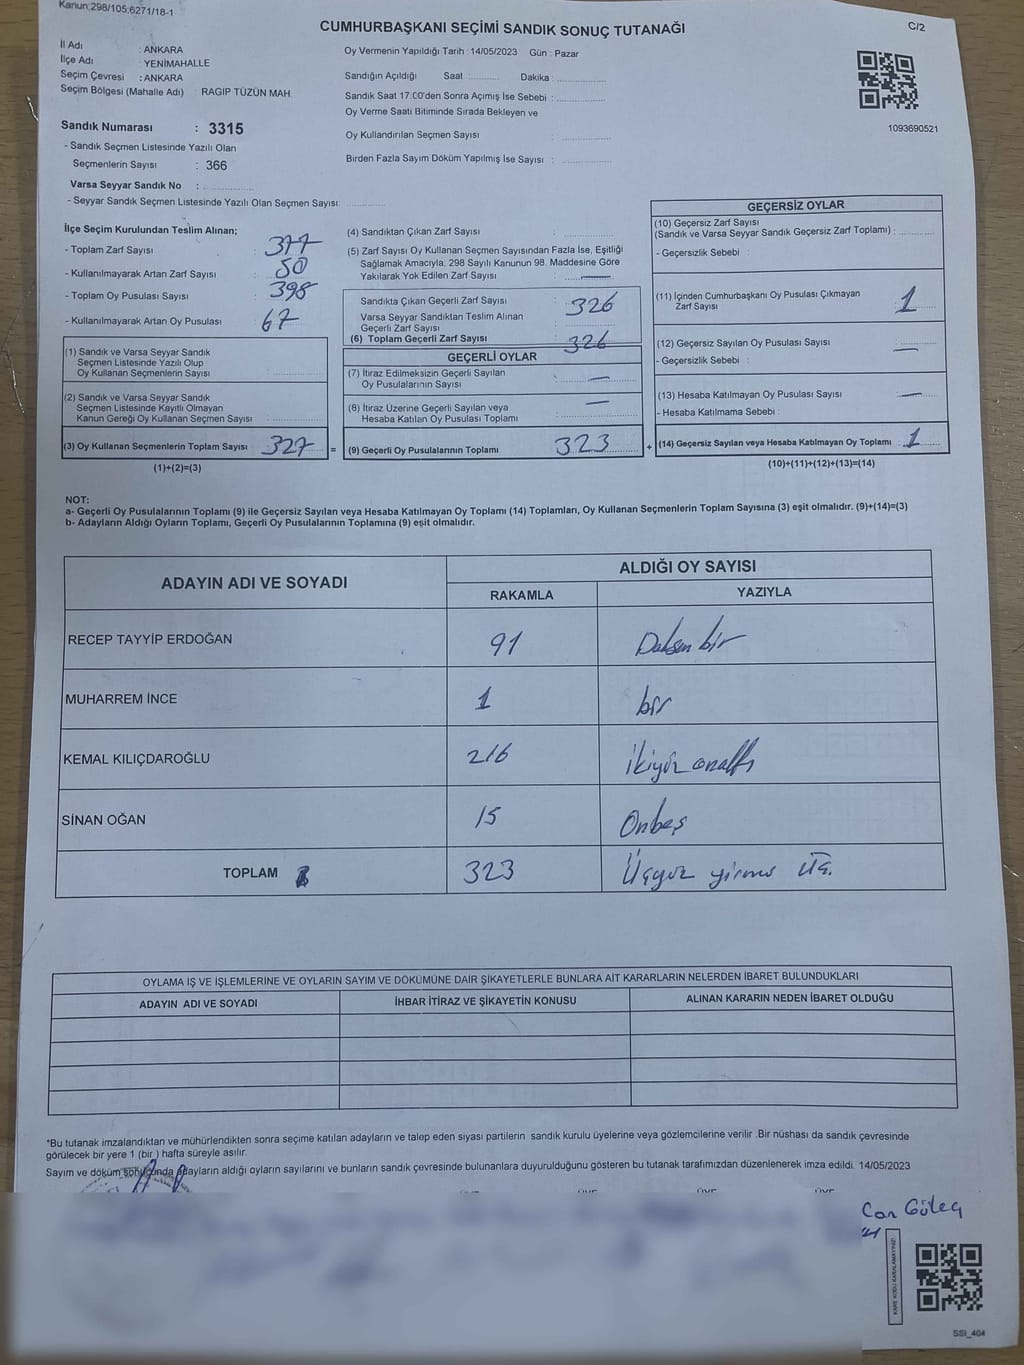 Kanun;298/105;6271/18-1
CUMHURBAŞKANI SEÇİMİ SANDIK SONUÇ TUTANAĞI
C/2
İl Adı : ANKARA
İlçe Adı : YENİMAHALLE
Seçim Çevresi : ANKARA
Seçim Bölgesi (Mahalle Adı) : RAGIP TÜZÜN MAH.
Oy Vermenin Yapıldığı Tarih : 14/05/2023 Gün : Pazar
Sandığın Açıldığı Saat : Dakika :
Sandık Saat 17:00'den Sonra Açımış İse Sebebi :
Oy Verme Saati Bitiminde Sırada Bekleyen ve
Oy Kullandırılan Seçmen Sayısı :
Birden Fazla Sayım Döküm Yapılmış İse Sayısı :
1093690521
Sandık Numarası : 3315
- Sandık Seçmen Listesinde Yazılı Olan
Seçmenlerin Sayısı : 366
Varsa Seyyar Sandık No :
- Seyyar Sandık Seçmen Listesinde Yazılı Olan Seçmen Sayısı:
İlçe Seçim Kurulundan Teslim Alınan;
- Toplam Zarf Sayısı : 377
- Kullanılmayarak Artan Zarf Sayısı : 50
- Toplam Oy Pusulası Sayısı : 398
- Kullanılmayarak Artan Oy Pusulası : 67
(1) Sandık ve Varsa Seyyar Sandık
Seçmen Listesinde Yazılı Olup
Oy Kullanan Seçmenlerin Sayısı :
(2) Sandık ve Varsa Seyyar Sandık
Seçmen Listesinde Kayıtlı Olmayan
Kanun Gereği Oy Kullanan Seçmen Sayısı :
(3) Oy Kullanan Seçmenlerin Toplam Sayısı 327 =
(1)+(2)=(3)
(4) Sandıktan Çıkan Zarf Sayısı :
(5) Zarf Sayısı Oy Kullanan Seçmen Sayısından Fazla İse, Eşitliği
Sağlamak Amacıyla; 298 Sayılı Kanunun 98. Maddesine Göre
Yakılarak Yok Edilen Zarf Sayısı : —
Sandıkta Çıkan Geçerli Zarf Sayısı : 326
Varsa Seyyar Sandıktan Teslim Alınan
Geçerli Zarf Sayısı :
(6) Toplam Geçerli Zarf Sayısı : 326
GEÇERLİ OYLAR
(7) İtiraz Edilmeksizin Geçerli Sayılan
Oy Pusulalarının Sayısı : —
(8) İtiraz Üzerine Geçerli Sayılan veya
Hesaba Katılan Oy Pusulası Toplamı : —
(9) Geçerli Oy Pusulalarının Toplamı 323 +
GEÇERSİZ OYLAR
(10) Geçersiz Zarf Sayısı
(Sandık ve Varsa Seyyar Sandık Geçersiz Zarf Toplamı) :
- Geçersizlik Sebebi :
(11) İçinden Cumhurbaşkanı Oy Pusulası Çıkmayan
Zarf Sayısı : 1
(12) Geçersiz Sayılan Oy Pusulası Sayısı : —
- Geçersizlik Sebebi :
(13) Hesaba Katılmayan Oy Pusulası Sayısı : —
- Hesaba Katılmama Sebebi :
(14) Geçersiz Sayılan veya Hesaba Katılmayan Oy Toplamı : 1
(10)+(11)+(12)+(13)=(14)
NOT:
a- Geçerli Oy Pusulalarının Toplamı (9) ile Geçersiz Sayılan veya Hesaba Katılmayan Oy Toplamı (14) Toplamları, Oy Kullanan Seçmenlerin Toplam Sayısına (3) eşit olmalıdır. (9)+(14)=(3)
b- Adayların Aldığı Oyların Toplamı, Geçerli Oy Pusulalarının Toplamına (9) eşit olmalıdır.
ADAYIN ADI VE SOYADI
ALDIĞI OY SAYISI
RAKAMLA YAZIYLA
RECEP TAYYİP ERDOĞAN 91 Doksan bir
MUHARREM İNCE 1 bir
KEMAL KILIÇDAROĞLU 216 ikiyüz onaltı
SİNAN OĞAN 15 Onbeş
TOPLAM 323 Üçyüz yirmi üç.
OYLAMA İŞ VE İŞLEMLERİNE VE OYLARIN SAYIM VE DÖKÜMÜNE DAİR ŞİKAYETLERLE BUNLARA AİT KARARLARIN NELERDEN İBARET BULUNDUKLARI
ADAYIN ADI VE SOYADI İHBAR İTİRAZ VE ŞİKAYETİN KONUSU ALINAN KARARIN NEDEN İBARET OLDUĞU
*Bu tutanak imzalandıktan ve mühürlendikten sonra seçime katılan adayların ve talep eden siyasi partilerin sandık kurulu üyelerine veya gözlemcilerine verilir .Bir nüshası da sandık çevresinde
görülecek bir yere 1 (bir ) hafta süreyle asılır.
Sayım ve döküm sonucunda adayların aldığı oyların sayılarını ve bunların sandık çevresinde bulunanlara duyurulduğunu gösteren bu tutanak tarafımızdan düzenlenerek imza edildi. 14/05/2023
ÜYE ÜYE ÜYE ÜYE
Can Güleç
KARE KODU KARALAMAYINIZ!
SSI_404